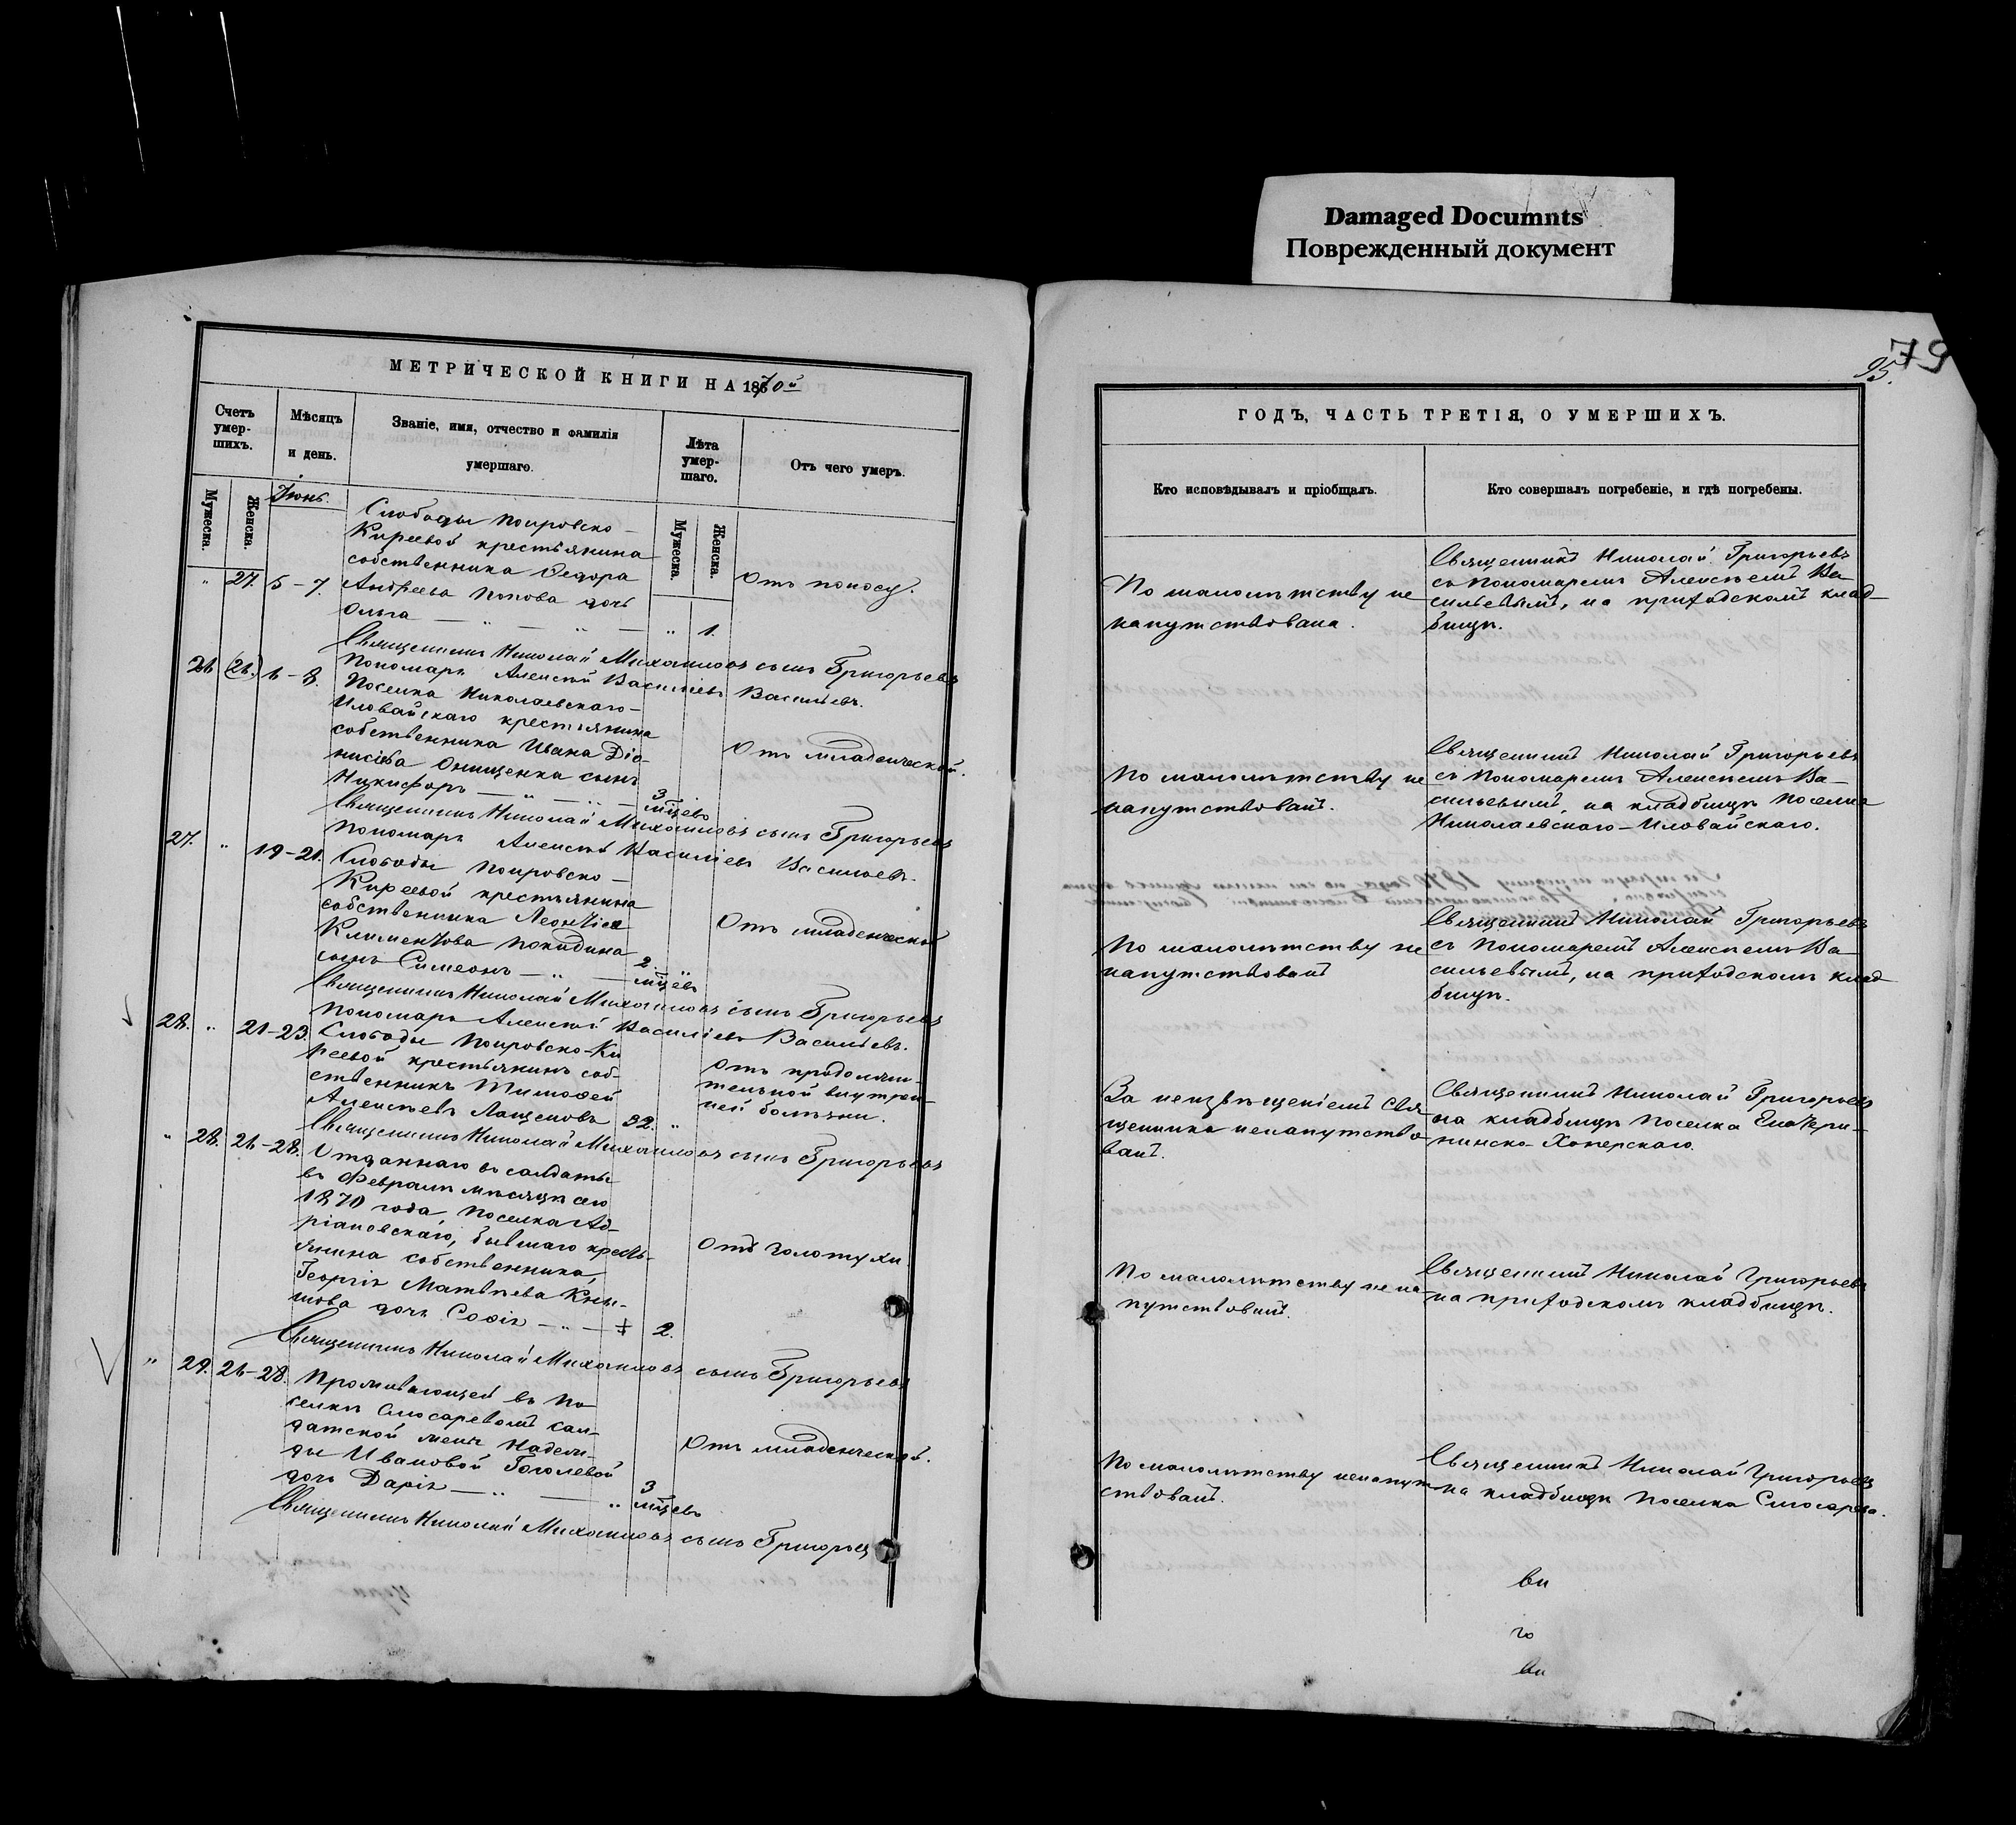 Damaged Documnts
Поврежденный документ
МЕТРИЧЕСКОЙ КНИГИ НА 1870й
Счетъ умер- шихъ.
Мѣсяцъ и день.
Званіе, имя, отчество и фамилія умершаго.
Лѣта умер- шаго.
Отъ чего умеръ.
Мужеска.
Женска.
Іюнь.
Мужеска.
Женска.
Слободы Покровско-
Киреевой крестьянина
собственника Ѳедора
" 27. 5-7. Андреева Попова дочь
Ольга — " — " — " 1.
Отъ поносу.
Священникъ Николай Михайловъ сынъ Григорьевъ
Пономарь Алексѣй Василіевъ Васильевъ.
26 (26.) 6-8. Поселка Николаевскаго-
Иловайскаго крестьянина
собственника Ивана Діо-
нисіева Онищенка сынъ
Никифоръ — " — " — 3 мцевъ
Отъ младенческой.
Священникъ Николай Михайловъ сынъ Григорьевъ
Пономарь Алексѣй Василіевъ Васильевъ.
27. " 19-21. Слободы Покровско-
Киреевой крестьянина
собственника Леонтія
Климентова
сынъ Симеонъ — " — 2. мцевъ
Отъ младенческой
Священникъ Николай Михайловъ сынъ Григорьевъ
Пономарь Алексѣй Василіевъ Васильевъ.
28. " 21-23. Слободы Покровско-Ки
реевой крестьянинъ соб-
ственникъ Тимоѳей
Алексѣевъ Лащеновъ 32. "
Отъ продолжи-
тельной внутрен-
ней болѣзни.
Священникъ Николай Михайловъ сынъ Григорьевъ
" 28. 26-28. Отданнаго въ солдаты
въ Февралѣ мѣсяцѣ сего
1870 года, поселка Ад-
ріановскаго, бывшаго кресть-
янина собственника,
Георгія Матвѣева Кны-
шова дочь Софія — " — 2.
Отъ золотухи
Священникъ Николай Михайловъ сынъ Григорьевъ
" 29. 26-28. Проживающей въ по
селкѣ Слюсаревомъ сал-
датской жены Надеж-
ды Ивановой Гоголевой
дочь Дарія — " — " 3 мцевъ
Отъ младенческой.
Священникъ Николай Михайловъ сынъ Григорьев
95. 79
ГОДЪ, ЧАСТЬ ТРЕТІЯ, О УМЕРШИХЪ.
Кто исповѣдывалъ и пріобщалъ.
Кто совершалъ погребеніе, и гдѣ погребены.
По малолѣтству не
напутствована.
Священникъ Николай Григорьевъ
съ Пономаремъ Алексѣемъ Ва-
сильевымъ, на приходскомъ клад-
бищѣ.
По малолѣтству не
напутствованъ.
Священникъ Николай Григорьевъ
съ Пономаремъ Алексѣемъ Ва-
сильевымъ, на кладбищѣ поселка
Николаевскаго-Иловайскаго.
По малолѣтству не
напутствованъ
Священникъ Николай Григорьевъ
съ Пономаремъ Алексѣемъ Ва-
сильевымъ, на приходскомъ клад-
бищѣ.
За неизвѣщеніемъ свя
щенника ненапутство
ванъ.
Священникъ Николай Григорьевъ
на кладбищѣ поселка Екатери-
нинско-Хоперскаго.
По малолѣтству не на-
путствованъ.
Священникъ Николай Григорьевъ
на приходскомъ кладбищѣ.
По малолѣтству ненапут
ствованъ.
Священникъ Николай Григорьевъ
на кладбищѣ поселка Слюсарева.
ви
го
ви